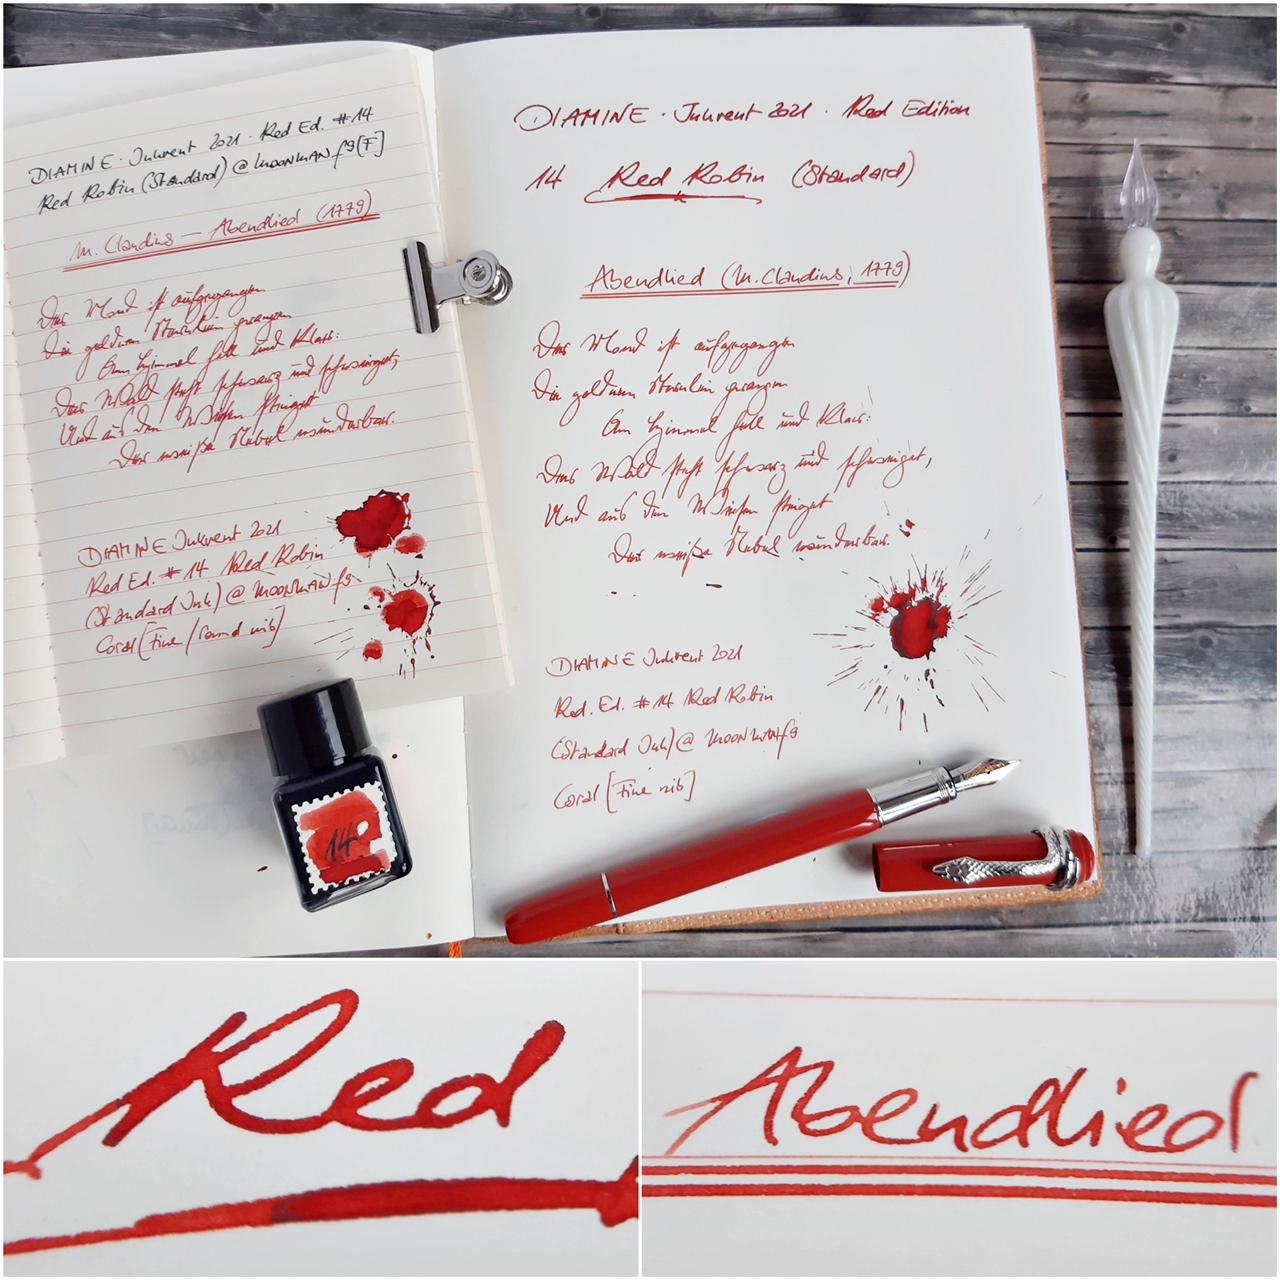 DIAMINE · Inkvent 2021 · Red Ed. #14
Red Robin (Standard) @ MOONMAN f9 [F]
M. Claudius — Abendlied (1779)
Der Mond ist aufgegangen
Die goldnen Sternlein prangen
Am Himmel hell und klar:
Der Wald steht schwarz und schweiget,
Und aus den Wiesen steiget
Der weiße Nebel wunderbar.
DIAMINE Inkvent 2021
Red Ed. #14 Red Robin
(Standard Ink) @ MOONMAN f9
Coral [Fine / round nib]
14
DIAMINE · Inkvent 2021 · Red Edition
14 Red Robin (Standard)
Abendlied (M. Claudius, 1779)
Der Mond ist aufgegangen
Die goldnen Sternlein prangen
Am Himmel hell und klar:
Der Wald steht schwarz und schweiget,
Und aus den Wiesen steiget
Der weiße Nebel wunderbar.
DIAMINE Inkvent 2021
Red. Ed. #14 Red Robin
(Standard Ink) @ MOONMAN f9
Coral [Fine nib]
Red
Abendlied